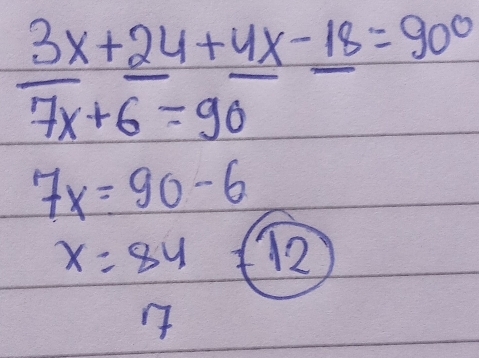 3x+24+4x-18=90°
7x+6=90
7x=90-6
x=84 =12
7